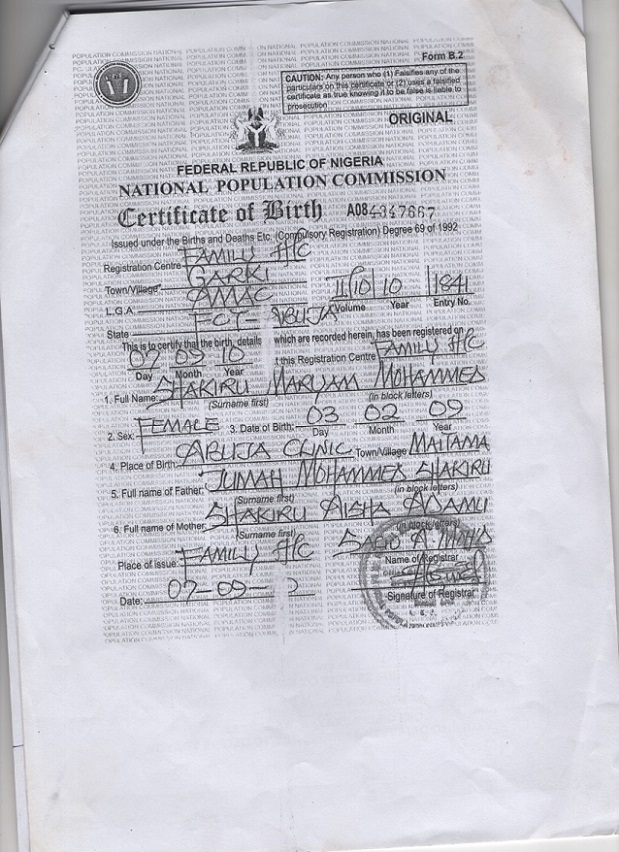 Form B.2
CAUTION: Any person who (1) Falsifies any of the
particulars on this certificate or (2) uses a falsified
certificate as true knowing it to be false is liable to
prosecution
ORIGINAL
FEDERAL REPUBLIC OF NIGERIA
NATIONAL POPULATION COMMISSION
Certificate of Birth A084347667
Issued under the Births and Deaths Etc. (Compulsory Registration) Degree 69 of 1992
Registration Centre FAMILY H/C
Town/Village GARKI
L.G.A. AMAC
Volume Year Entry No. 1841
State FCT - ABUJA
This is to certify that the birth, details which are recorded herein, has been registered on
07 09 10 at this Registration Centre FAMILY H/C
Day Month Year
1. Full Name: SHAKIRU MARYAM MOHAMMED
(Surname first) (in block letters)
2. Sex: FEMALE 3. Date of Birth: 03 02 09
Day Month Year
4. Place of Birth: ABUJA CLINIC Town/Village MAITAMA
5. Full name of Father: JUMAH MOHAMMED SHAKIRU
(Surname first) (in block letters)
6. Full name of Mother: SHAKIRU AISHA ADAMU
(Surname first) (in block letters)
Place of issue: FAMILY H/C
Name of Registrar
Date: 07-09-
Signature of Registrar